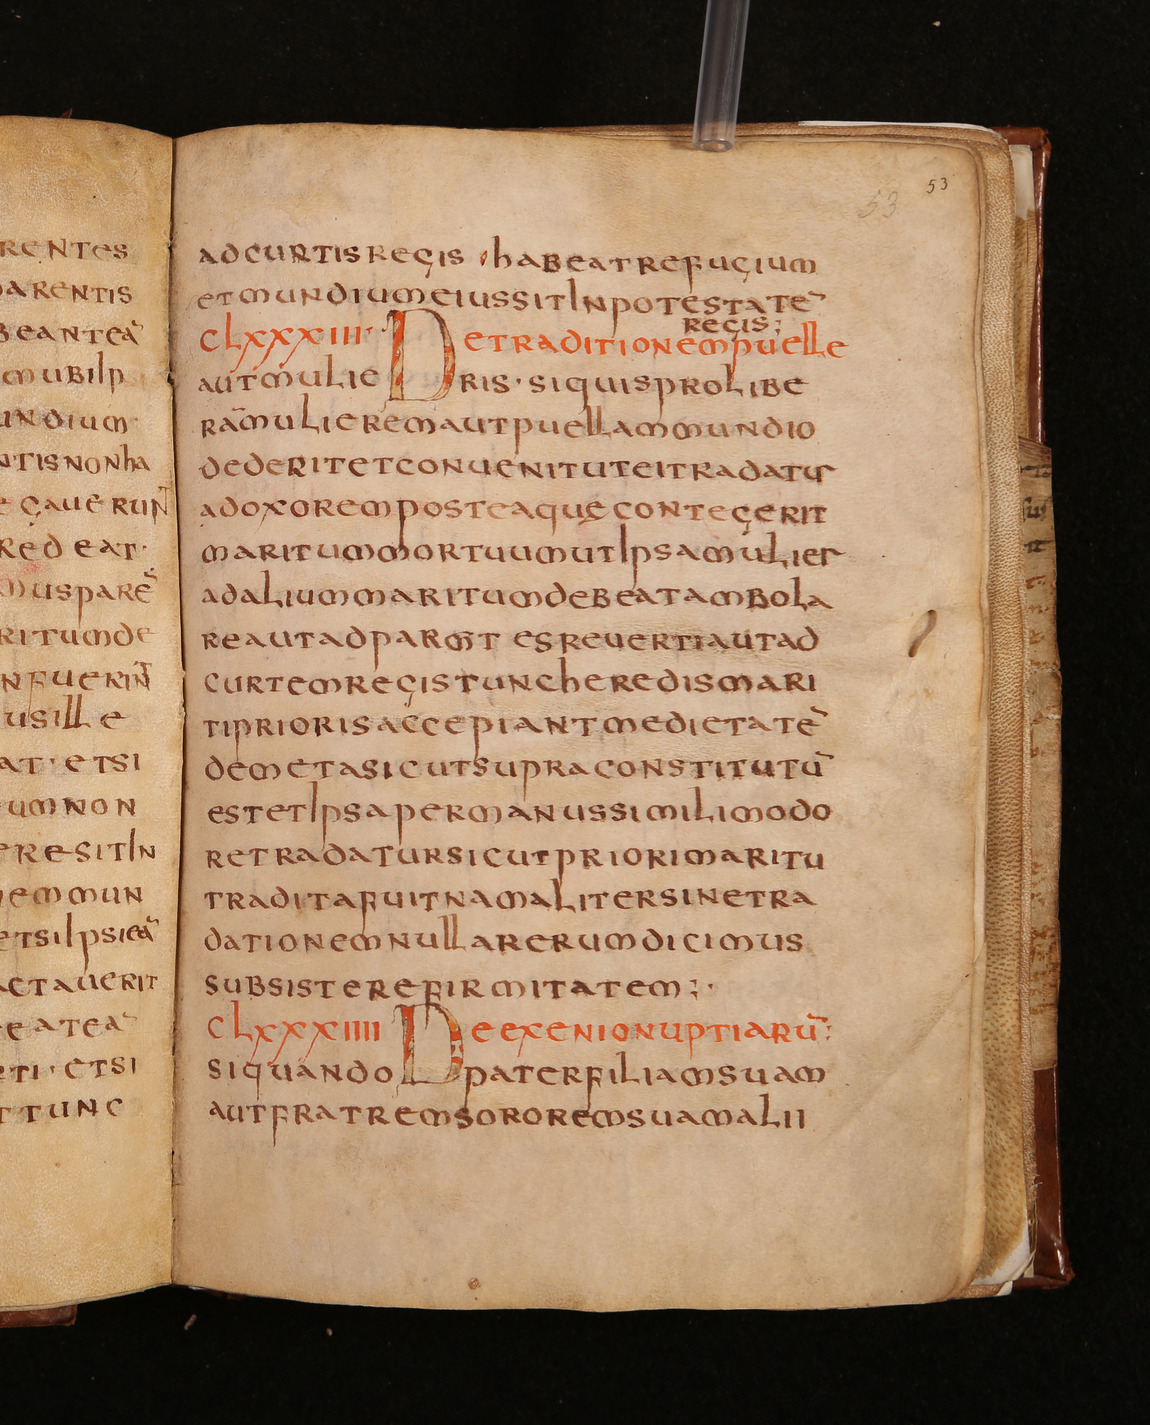 RENTES
ARENTIS
BEANTEā
MUBILP
UNDIUM
NTISNONHA
GAUERUN̄
REDEAT·
MUSPARĒ
RITUMDE
NFUERIN̄T
USILLE
AT·ETSI
UMNON
ERESITIN
EMMUN
ETSIIPSIEĀ
ACTAUERIT
EATEĀ
RTI·ETSI
TTUNC
53
53
ADCURTISREGIS·HABEATREFUGIUM
ETMUNDIUMEIUSSITINPOTESTATĒ
REGIS;
CLXXXIII· DETRADITIONEMPUELLE
AUTMULIERIS·SIQUISPROLIBE
RĀMULIEREMAUTPUELLAMMUNDIO
DEDERITETCONUENITUTEITRADATUR
ADOXOREMPOSTEAQUECONTEGERIT
MARITUMMORTUUMUTIPSAMULIER
ADALIUMMARITUMDEBEATAMBOLA
REAUTADPARENTESREUERTIAUTAD
CURTEMREGISTUNCHEREDISMARI
TIPRIORISACCEPIANTMEDIETATĒ
DEMETASICUTSUPRACONSTITUTŪ
ESTETIPSAPERMANUSSIMILIMODO
RETRADATURSICUTPRIORIMARITU
TRADITAFUITNAMALITERSINETRA
DATIONEMNULLARERUMDICIMUS
SUBSISTEREFIRMITATEM;·
CLXXXIIII DEEXENIONUPTIARŪ:
SIQUANDOPATERFILIAMSUAM
AUTFRATREMSOROREMSUAMALII